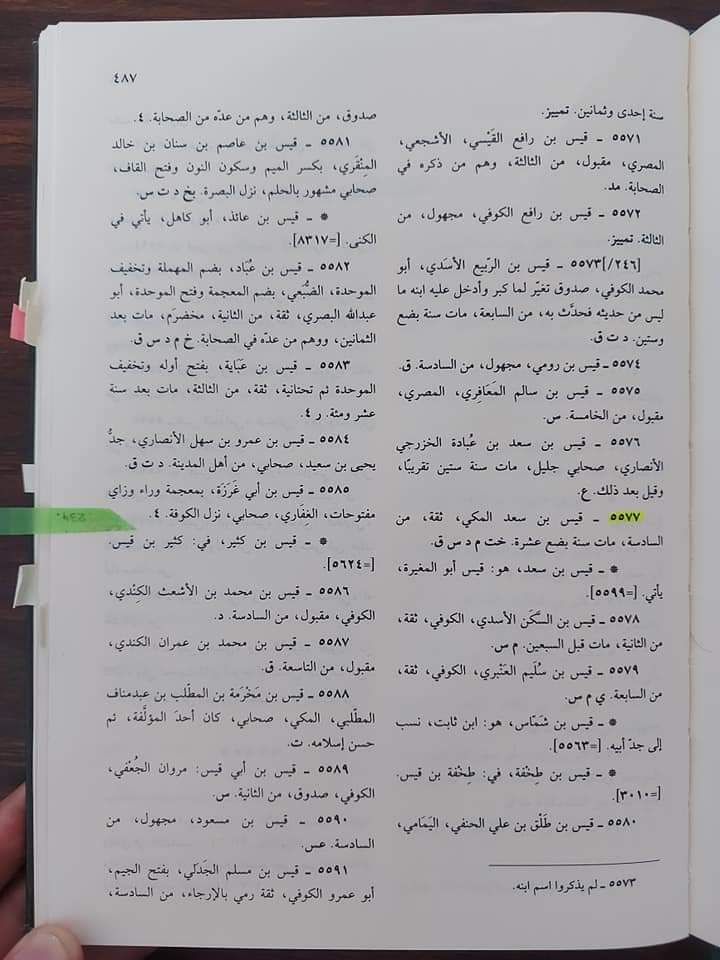 ٤٨٧
سنة إحدى وثمانين. تمييز.
٥٥٧١ ـ قيس بن رافع القَيْسي، الأشجعي،
المصري، مقبول، من الثالثة، وهم من ذكره في
الصحابة. مد.
٥٥٧٢ ـ قيس بن رافع الكوفي، مجهول، من
الثالثة. تمييز.
[٢٤٦/] ٥٥٧٣ ـ قيس بن الرّبيع الأسَدي، أبو
محمد الكوفي، صدوق تغيّر لما كبر وأدخل عليه ابنه ما
ليس من حديثه فحدَّث به، من السابعة، مات سنة بضع
وستين. د ت ق.
٥٥٧٤ ـ قيس بن رومي، مجهول، من السادسة. ق.
٥٥٧٥ ـ قيس بن سالم المَعَافِري، المصري،
مقبول، من الخامسة. س.
٥٥٧٦ ـ قيس بن سعد بن عُبادة الخزرجي
الأنصاري، صحابي جليل، مات سنة ستين تقريبًا،
وقيل بعد ذلك. ع.
٥٥٧٧ ـ قيس بن سعد المكي، ثقة، من
السادسة، مات سنة بضع عشرة. خت م د س ق.
* ـ قيس بن سعد، هو: قيس أبو المغيرة،
يأتي. [=٥٥٩٩].
٥٥٧٨ ـ قيس بن السَّكَن الأسدي، الكوفي، ثقة،
من الثانية، مات قبل السبعين. م س.
٥٥٧٩ ـ قيس بن سُلَيم العَنْبري، الكوفي، ثقة،
من السابعة. ي م س.
* ـ قيس بن شَمّاس، هو: ابن ثابت، نسب
إلى جدّ أبيه. [=٥٥٦٣].
* ـ قيس بن طِخْفة، في: طِخْفة بن قيس.
[=٣٠١٠].
٥٥٨٠ ـ قيس بن طَلْق بن علي الحنفي، اليَمَامي،
٥٥٧٣ ـ لم يذكروا اسم ابنه.
صدوق، من الثالثة، وهم من عدّه من الصحابة. ٤.
٥٥٨١ ـ قيس بن عاصم بن سنان بن خالد
المِنْقَري، بكسر الميم وسكون النون وفتح القاف،
صحابي مشهور بالحلم، نزل البصرة. بخ د ت س.
* ـ قيس بن عائذ، أبو كاهل، يأتي في
الكنى. [=٨٣١٧].
٥٥٨٢ ـ قيس بن عُبَاد، بضم المهملة وتخفيف
الموحدة، الضُّبَعي، بضم المعجمة وفتح الموحدة، أبو
عبدالله البصري، ثقة، من الثانية، مخضرَم، مات بعد
الثمانين، ووهم من عدّه في الصحابة. خ م د س ق.
٥٥٨٣ ـ قيس بن عَبَاية، بفتح أوله وتخفيف
الموحدة ثم تحتانية، ثقة، من الثالثة، مات بعد سنة
عشر ومئة. ر ٤.
٥٥٨٤ ـ قيس بن عمرو بن سهل الأنصاري، جدُّ
يحيى بن سعيد، صحابي، من أهل المدينة. د ت ق.
٥٥٨٥ ـ قيس بن أبي غَرَزَة، بمعجمة وراء وزاي
مفتوحات، الغفاري، صحابي، نزل الكوفة. ٤.
* ـ قيس بن كثير، في: كثير بن قيس.
[=٥٦٢٤].
٥٥٨٦ ـ قيس بن محمد بن الأشعث الكِنْدي،
الكوفي، مقبول، من السادسة. د.
٥٥٨٧ ـ قيس بن محمد بن عمران الكندي،
مقبول، من التاسعة. ق.
٥٥٨٨ ـ قيس بن مَخْرَمة بن المطّلب بن عبدمناف
المطّلبي، المكي، صحابي، كان أحدَ المؤلَّفة، ثم
حسن إسلامه. ت.
٥٥٨٩ ـ قيس بن أبي قيس: مروان الجُعْفي،
الكوفي، صدوق، من الثانية. س.
٥٥٩٠ ـ قيس بن مسعود، مجهول، من
السادسة. عس.
٥٥٩١ ـ قيس بن مسلم الجَدَلي، بفتح الجيم،
أبو عمرو الكوفي، ثقة رمي بالإرجاء، من السادسة،